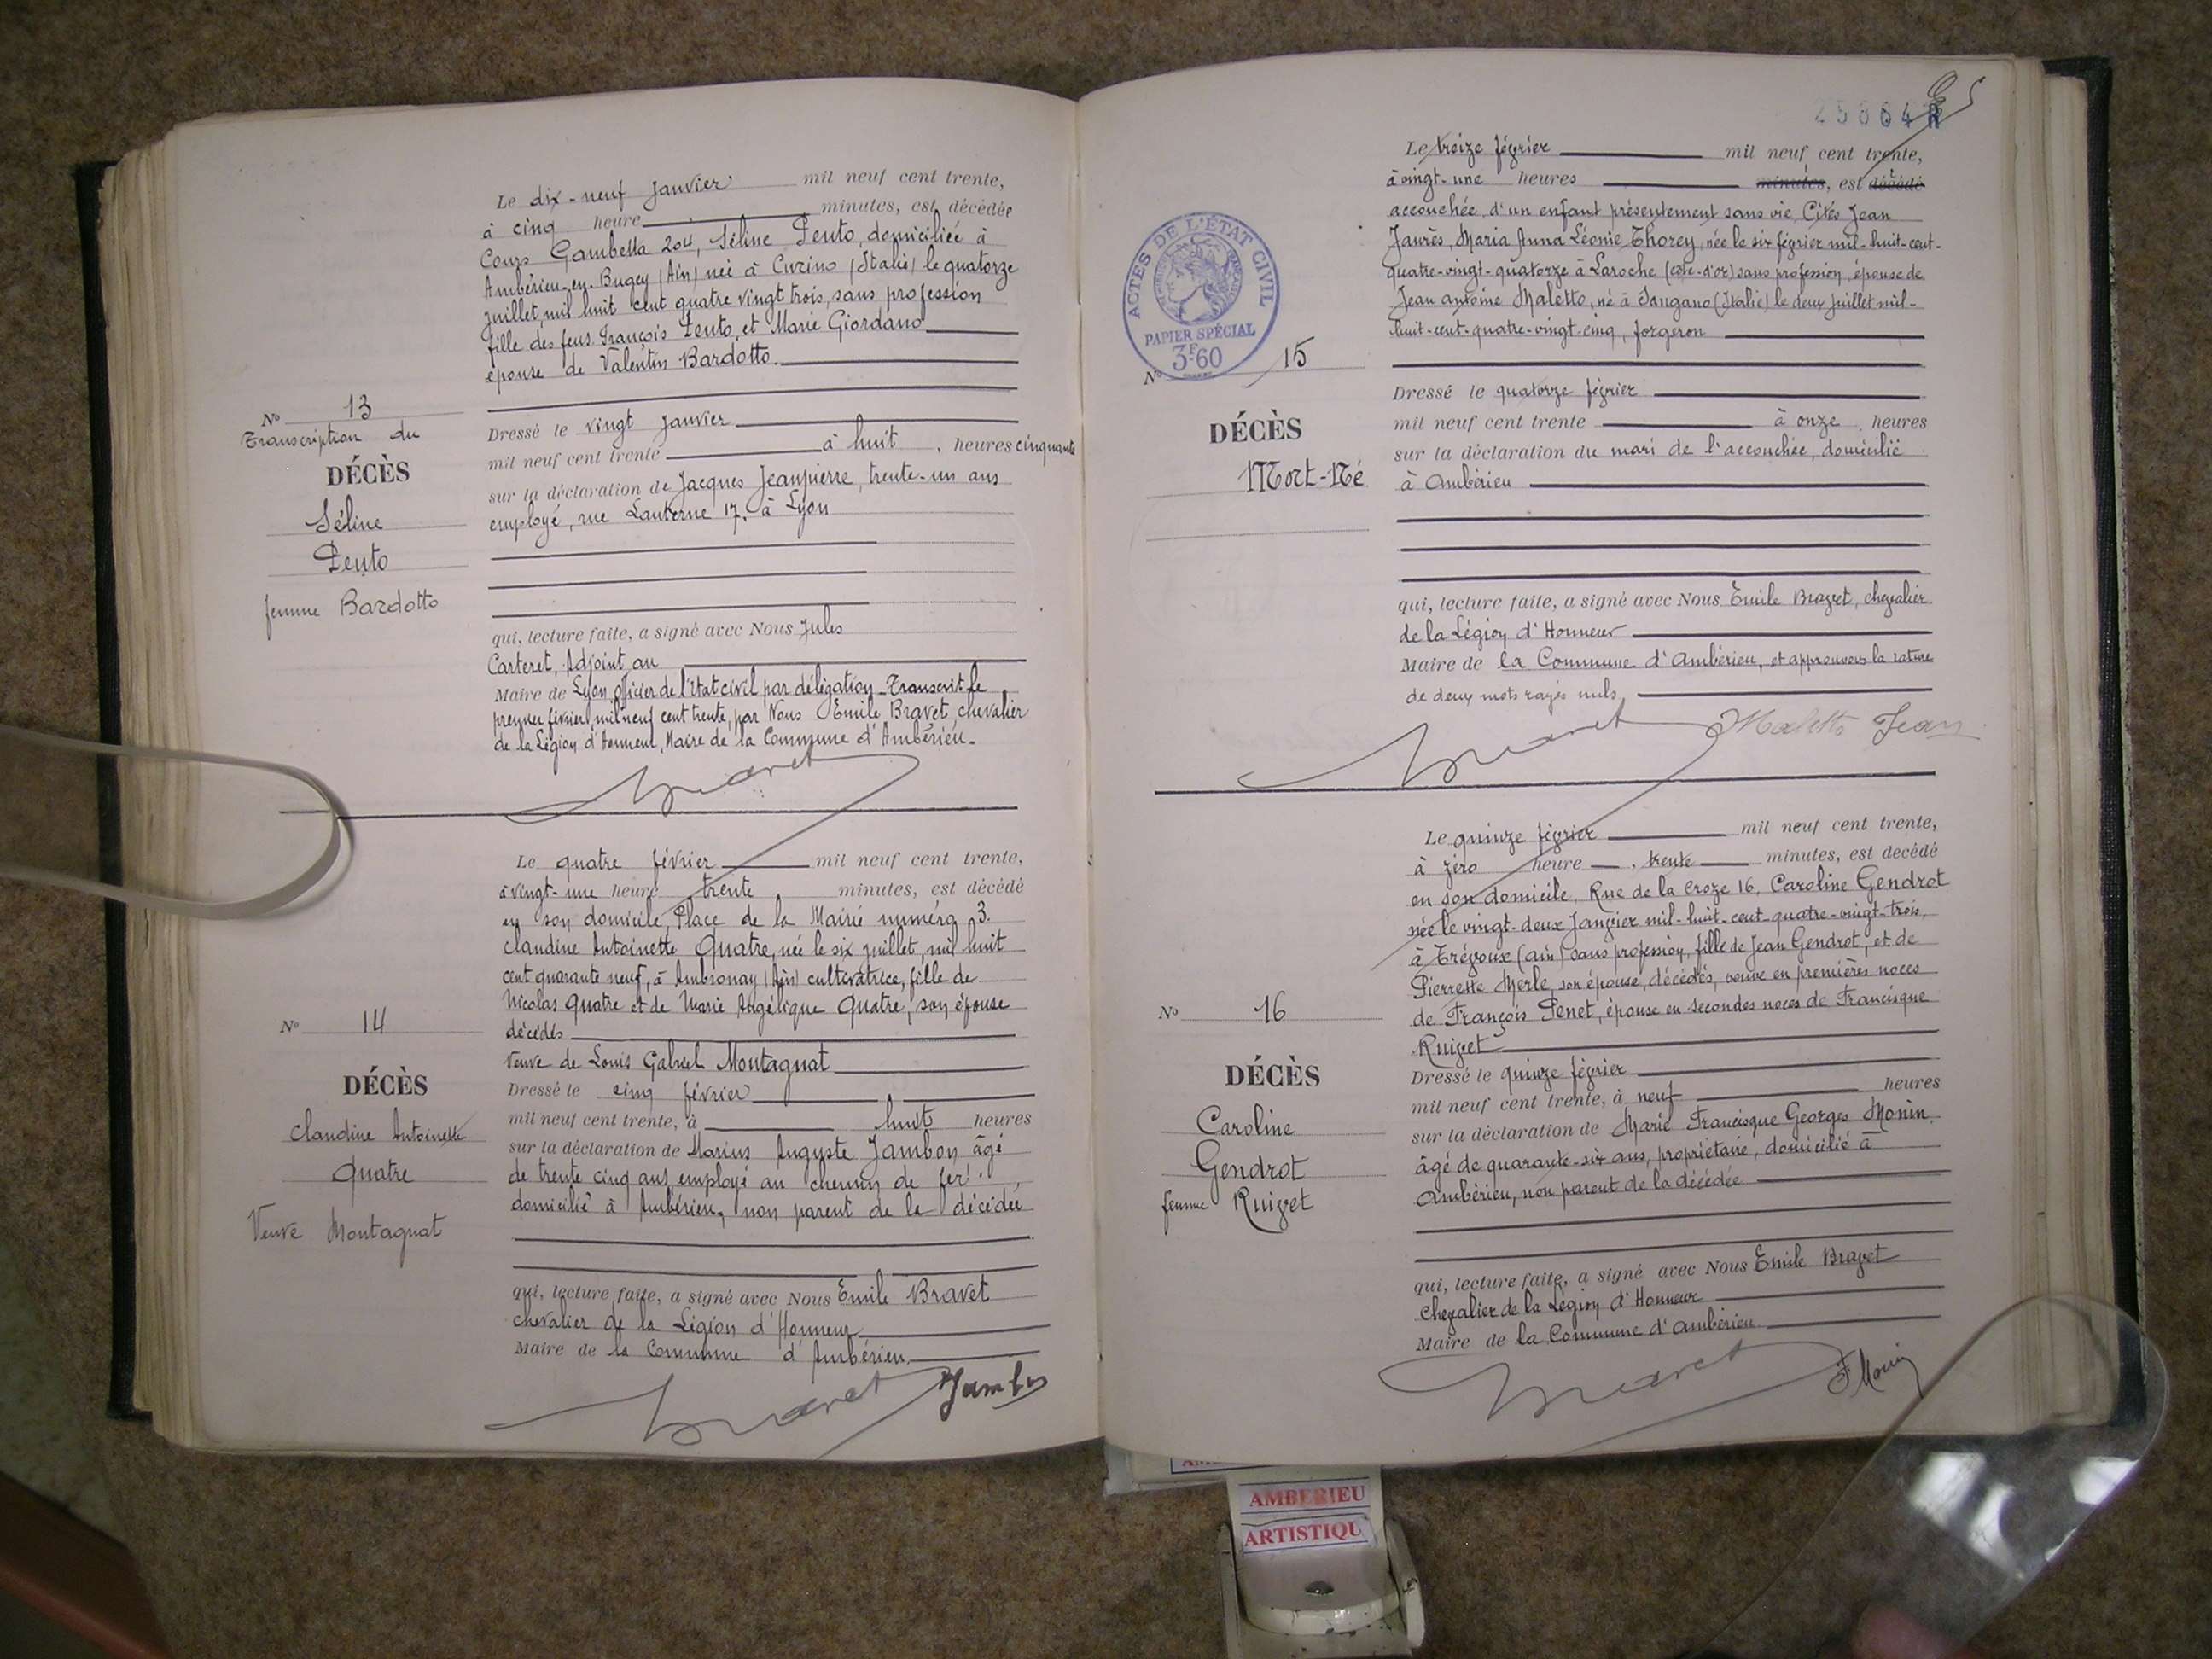 Le dix-neuf Janvier mil neuf cent trente,
à cinq heure minutes, est décédée
Cours Gambetta 204, Séline Pento, domiciliée à
Ambérieu-en-Bugey (Ain) née à (Italie) le quatorze
juillet, mil huit cent quatre vingt trois, sans profession
fille des feus François Pento, et Marie Giordano
épouse de Valentin Bardotto.
No 13
Transcription du
DÉCÈS
Séline
Pento
femme Bardotto
Dressé le vingt Janvier
mil neuf cent trente à huit heures cinquante
sur la déclaration de Jacques Jeanpierre, trente-un ans
employé, rue Lanterne 17, à Lyon
qui, lecture faite, a signé avec Nous Jules
Carteret, Adjoint au
Maire de Lyon officier de l'état civil par délégation - Transcrit le
premier février, mil neuf cent trente, par Nous Emile Bravet, chevalier
de la Légion d'honneur, Maire de la Commune d'Ambérieu.
Bravet
Le quatre février mil neuf cent trente,
à vingt-une heure trente minutes, est décédé
en son domicile, Place de la Mairie numéro 3.
Claudine Antoinette Quatre, née le six juillet, mil huit
cent quarante neuf, à Ambronay (Ain) cultivatrice, fille de
Nicolas Quatre et de Marie Angélique Quatre, son épouse
décédés
veuve de Louis Gabriel Montagnat
No 14
DÉCÈS
Claudine Antoinette
Quatre
Veuve Montagnat
Dressé le cinq février
mil neuf cent trente, à huit heures
sur la déclaration de Marius Auguste Jambon âgé
de trente cinq ans, employé au chemin de fer
domicilié à Ambérieu, non parent de la décédée
qui, lecture faite, a signé avec Nous Emile Bravet
chevalier de la Légion d'Honneur
Maire de la Commune d'Ambérieu.
Bravet Jambon
25664 R
Le treize février mil neuf cent trente,
à vingt-une heures minutes, est décédé
accouchée, d'un enfant présentement sans vie, Cités Jean
Jaurès, Maria Anna Léonie Thorey, née le six février mil-huit-cent-
quatre-vingt-quatorze à Laroche (côte-d'or) sans profession, épouse de
Jean antoine Maletto, né à (Italie) le deux juillet mil-
huit-cent-quatre-vingt-cinq, forgeron
ACTES DE L'ÉTAT CIVIL
PAPIER SPÉCIAL
3F60
No 15
DÉCÈS
Mort-Né
Dressé le quatorze février
mil neuf cent trente à onze heures
sur la déclaration du mari de l'accouchée, domicilié
à Ambérieu
qui, lecture faite, a signé avec Nous Emile Bravet, chevalier
de la Légion d'Honneur
Maire de la Commune d'Ambérieu, et approuvons la rature
de deux mots rayés nuls,
Bravet Maletto Jean
Le quinze février mil neuf cent trente,
à zéro heure trente minutes, est decédé
en son domicile, Rue de la Croze 16, Caroline Gendrot
née le vingt-deux Janvier mil-huit-cent-quatre-vingt-trois,
à Trévoux (ain) sans profession, fille de Jean Gendrot, et de
Pierrette Merle, son épouse, décédés, veuve en premières noces
de François Penet, épouse en secondes noces de Francisque
Ruivet
No 16
DÉCÈS
Caroline
Gendrot
femme Ruivet
Dressé le quinze février
mil neuf cent trente, à neuf heures
sur la déclaration de Marie Francisque Georges Monin
âgé de quarante-six ans, propriétaire, domicilié à
Ambérieu, non parent de la décédée
qui, lecture faite, a signé avec Nous Emile Bravet
Chevalier de la Légion d'Honneur
Maire de la Commune d'Ambérieu
Bravet F Monin
AMBERIEU
ARTISTIQU